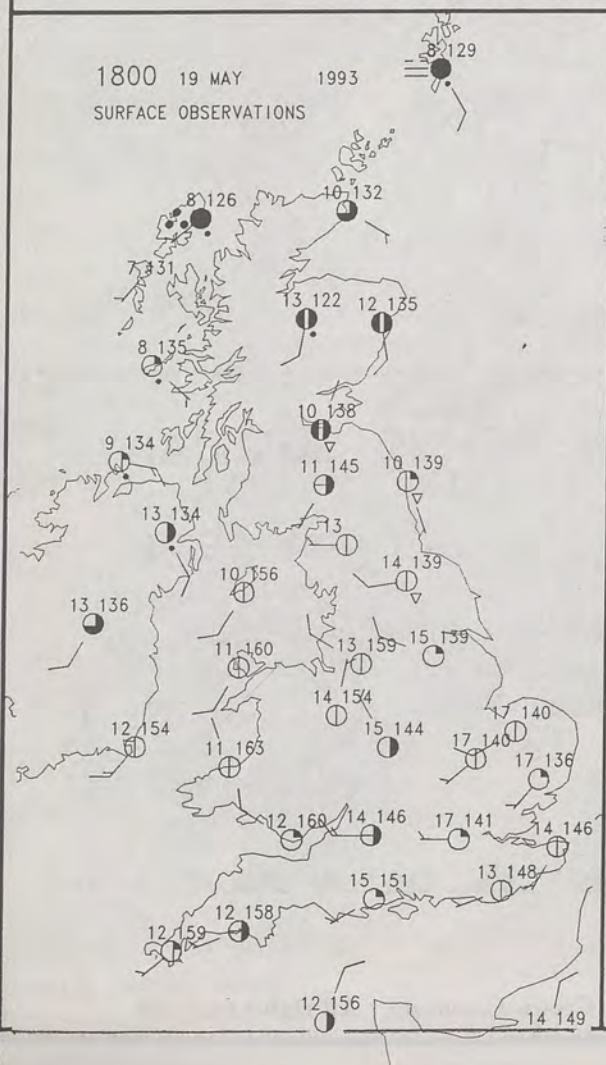 8 129
1800 19 MAY 1993
SURFACE OBSERVATIONS
8 126
10 132
7 131
13 122
12 135
8 135
10 138
9 134
11 145
10 139
13 134
13
10 156
14 139
13 136
11 160
13 159
15 139
14 154
12 154
11 163
15 144
17 140
17 140
17 136
12 160
14 146
17 141
14 146
15 151
13 148
12 158
12 159
12 156
14 149